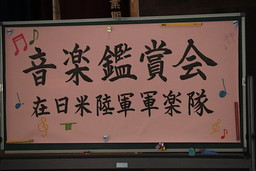 音楽鑑賞会
在日米陸軍軍楽隊